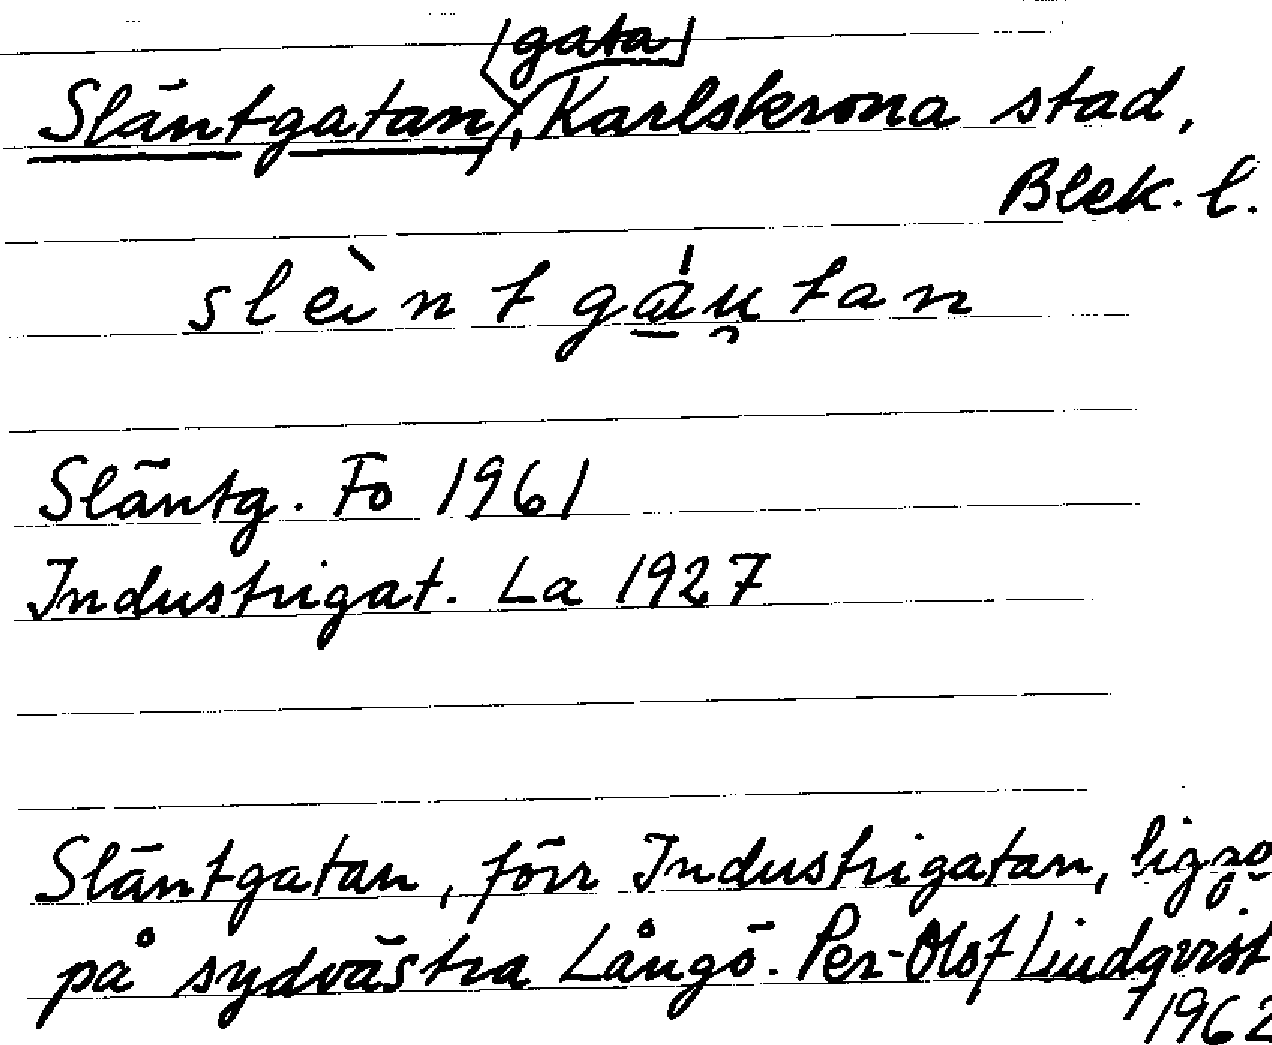 [gata]
Släntgatan, Karlskrona stad,
Blek. l.
slèi n t gáu̯tan
Släntg. Fo 1961
Industrigat. La 1927
Släntgatan, förr Industrigatan, ligger
på sydvästra Långö. Per-Olof Lindqvist
1962